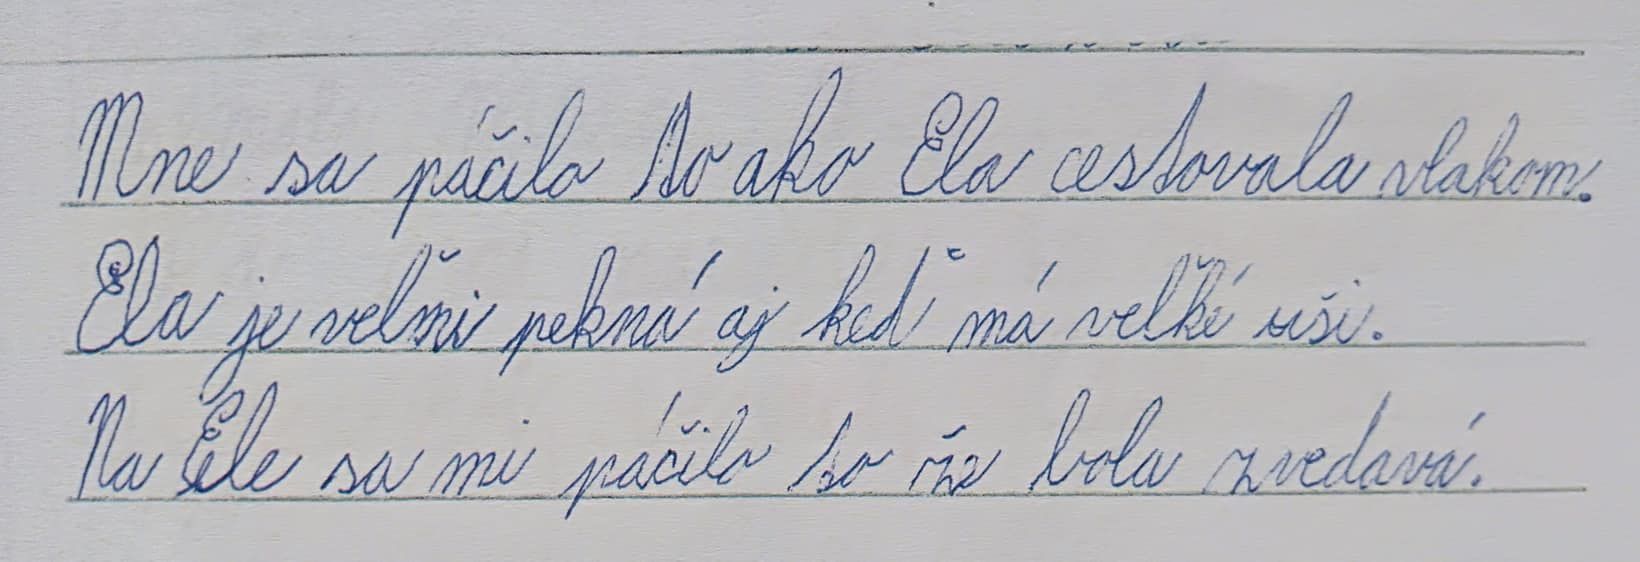 Mne sa páčilo to ako Ela cestovala vlakom.
Ela je veľmi pekná aj keď má veľké uši.
Na Ele sa mi páčilo to že bola zvedavá.